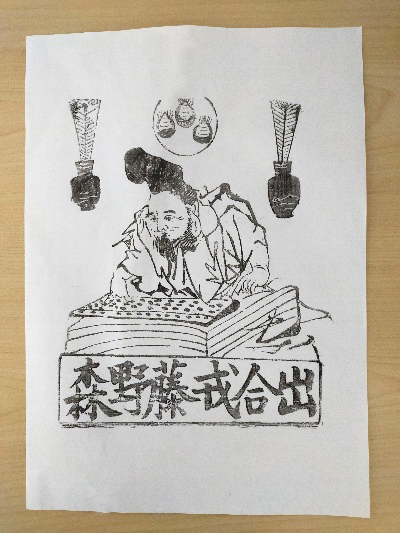 出合戎藤野森